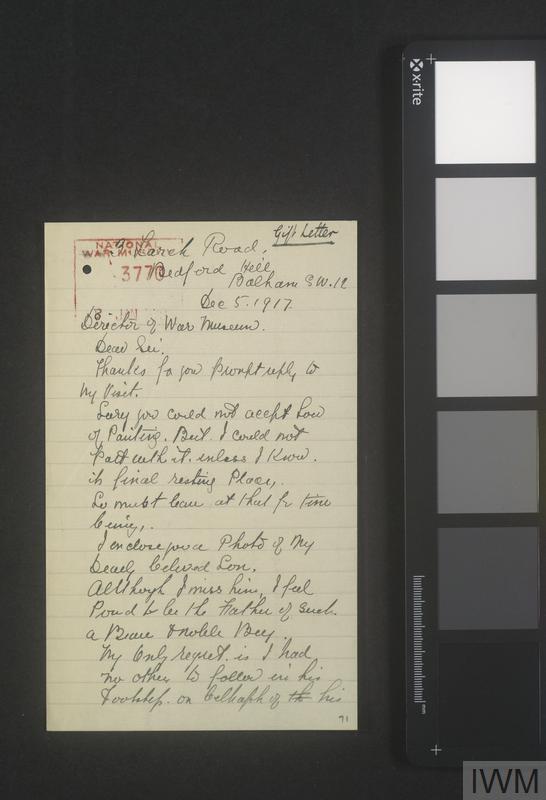 Gift Letter
9 Larch Road.
NATIONAL
WAR MUSEUM
3770
Bedford Hill
Balham S.W.12
Dec 5. 1917.
8 JAN
Director of War Museum.
Dear Sir.
Thanks for your prompt reply to
my Visit.
Sorry you could not accept Loan
of Painting. But I could not
Part with it. unless I Know.
its final resting Place,.
So must leave at that for time
being,.
I enclose you a Photo of My
Dearly beloved Son.
Allthough I miss him, I feel
Proud to be the Father of such
a Brave & noble Boy.
My Only regret. is I had
no other to follow in his
footstep. on behalf of th his
91
x-rite
mm
IWM